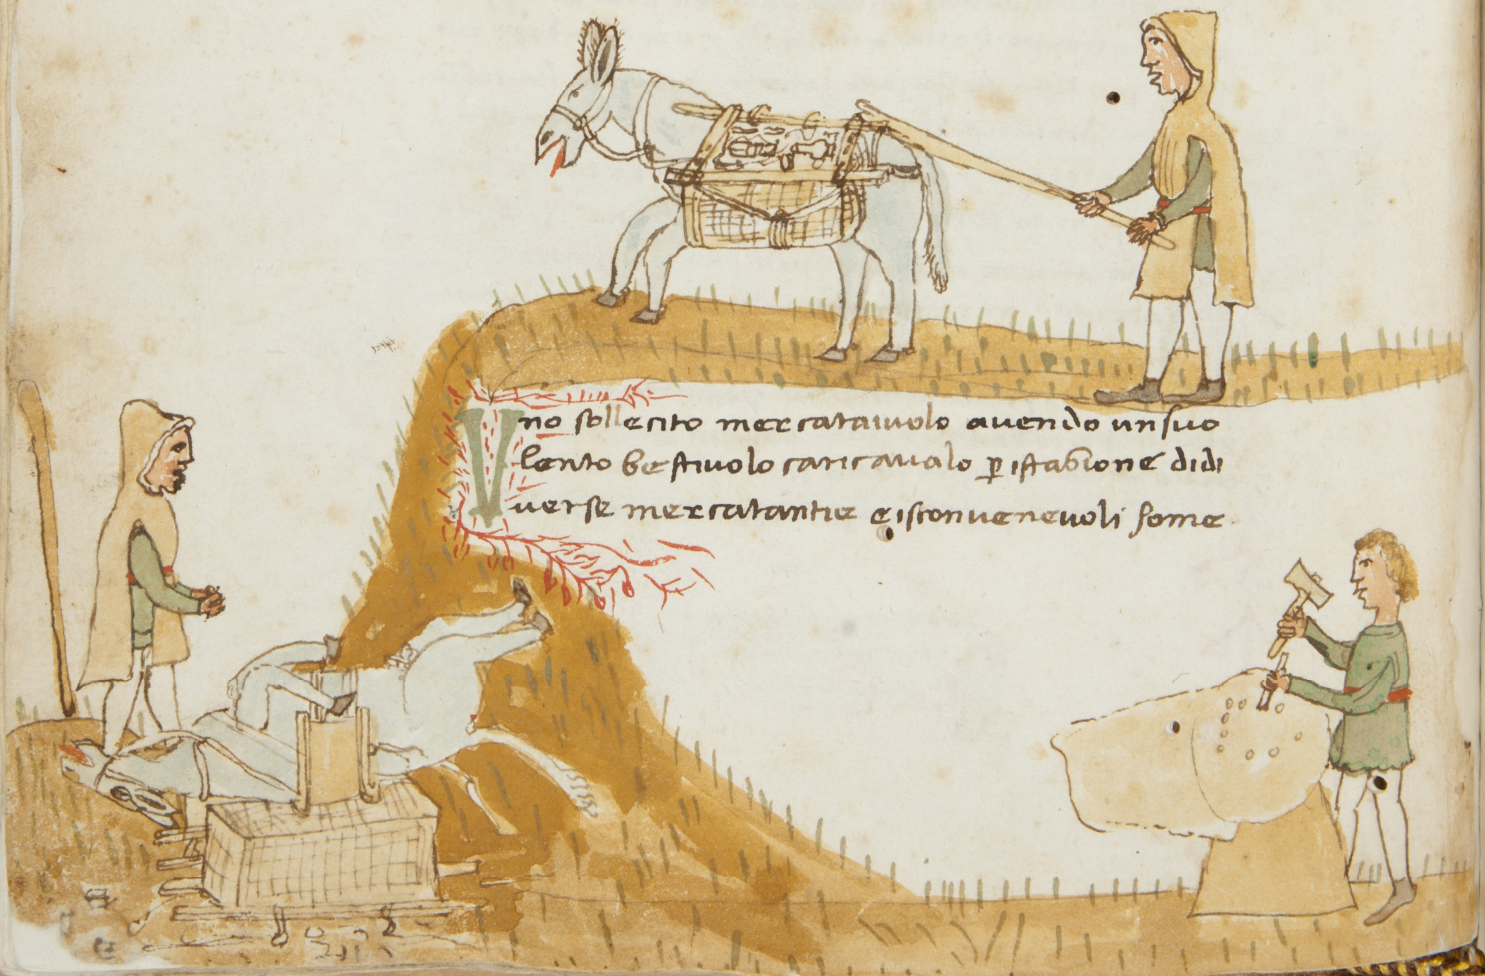 Uno sollecito mercataiuolo auendo un suo
lento bestiuolo caricaualo p istasione didi
uerse mercatantie e isconueneuoli some